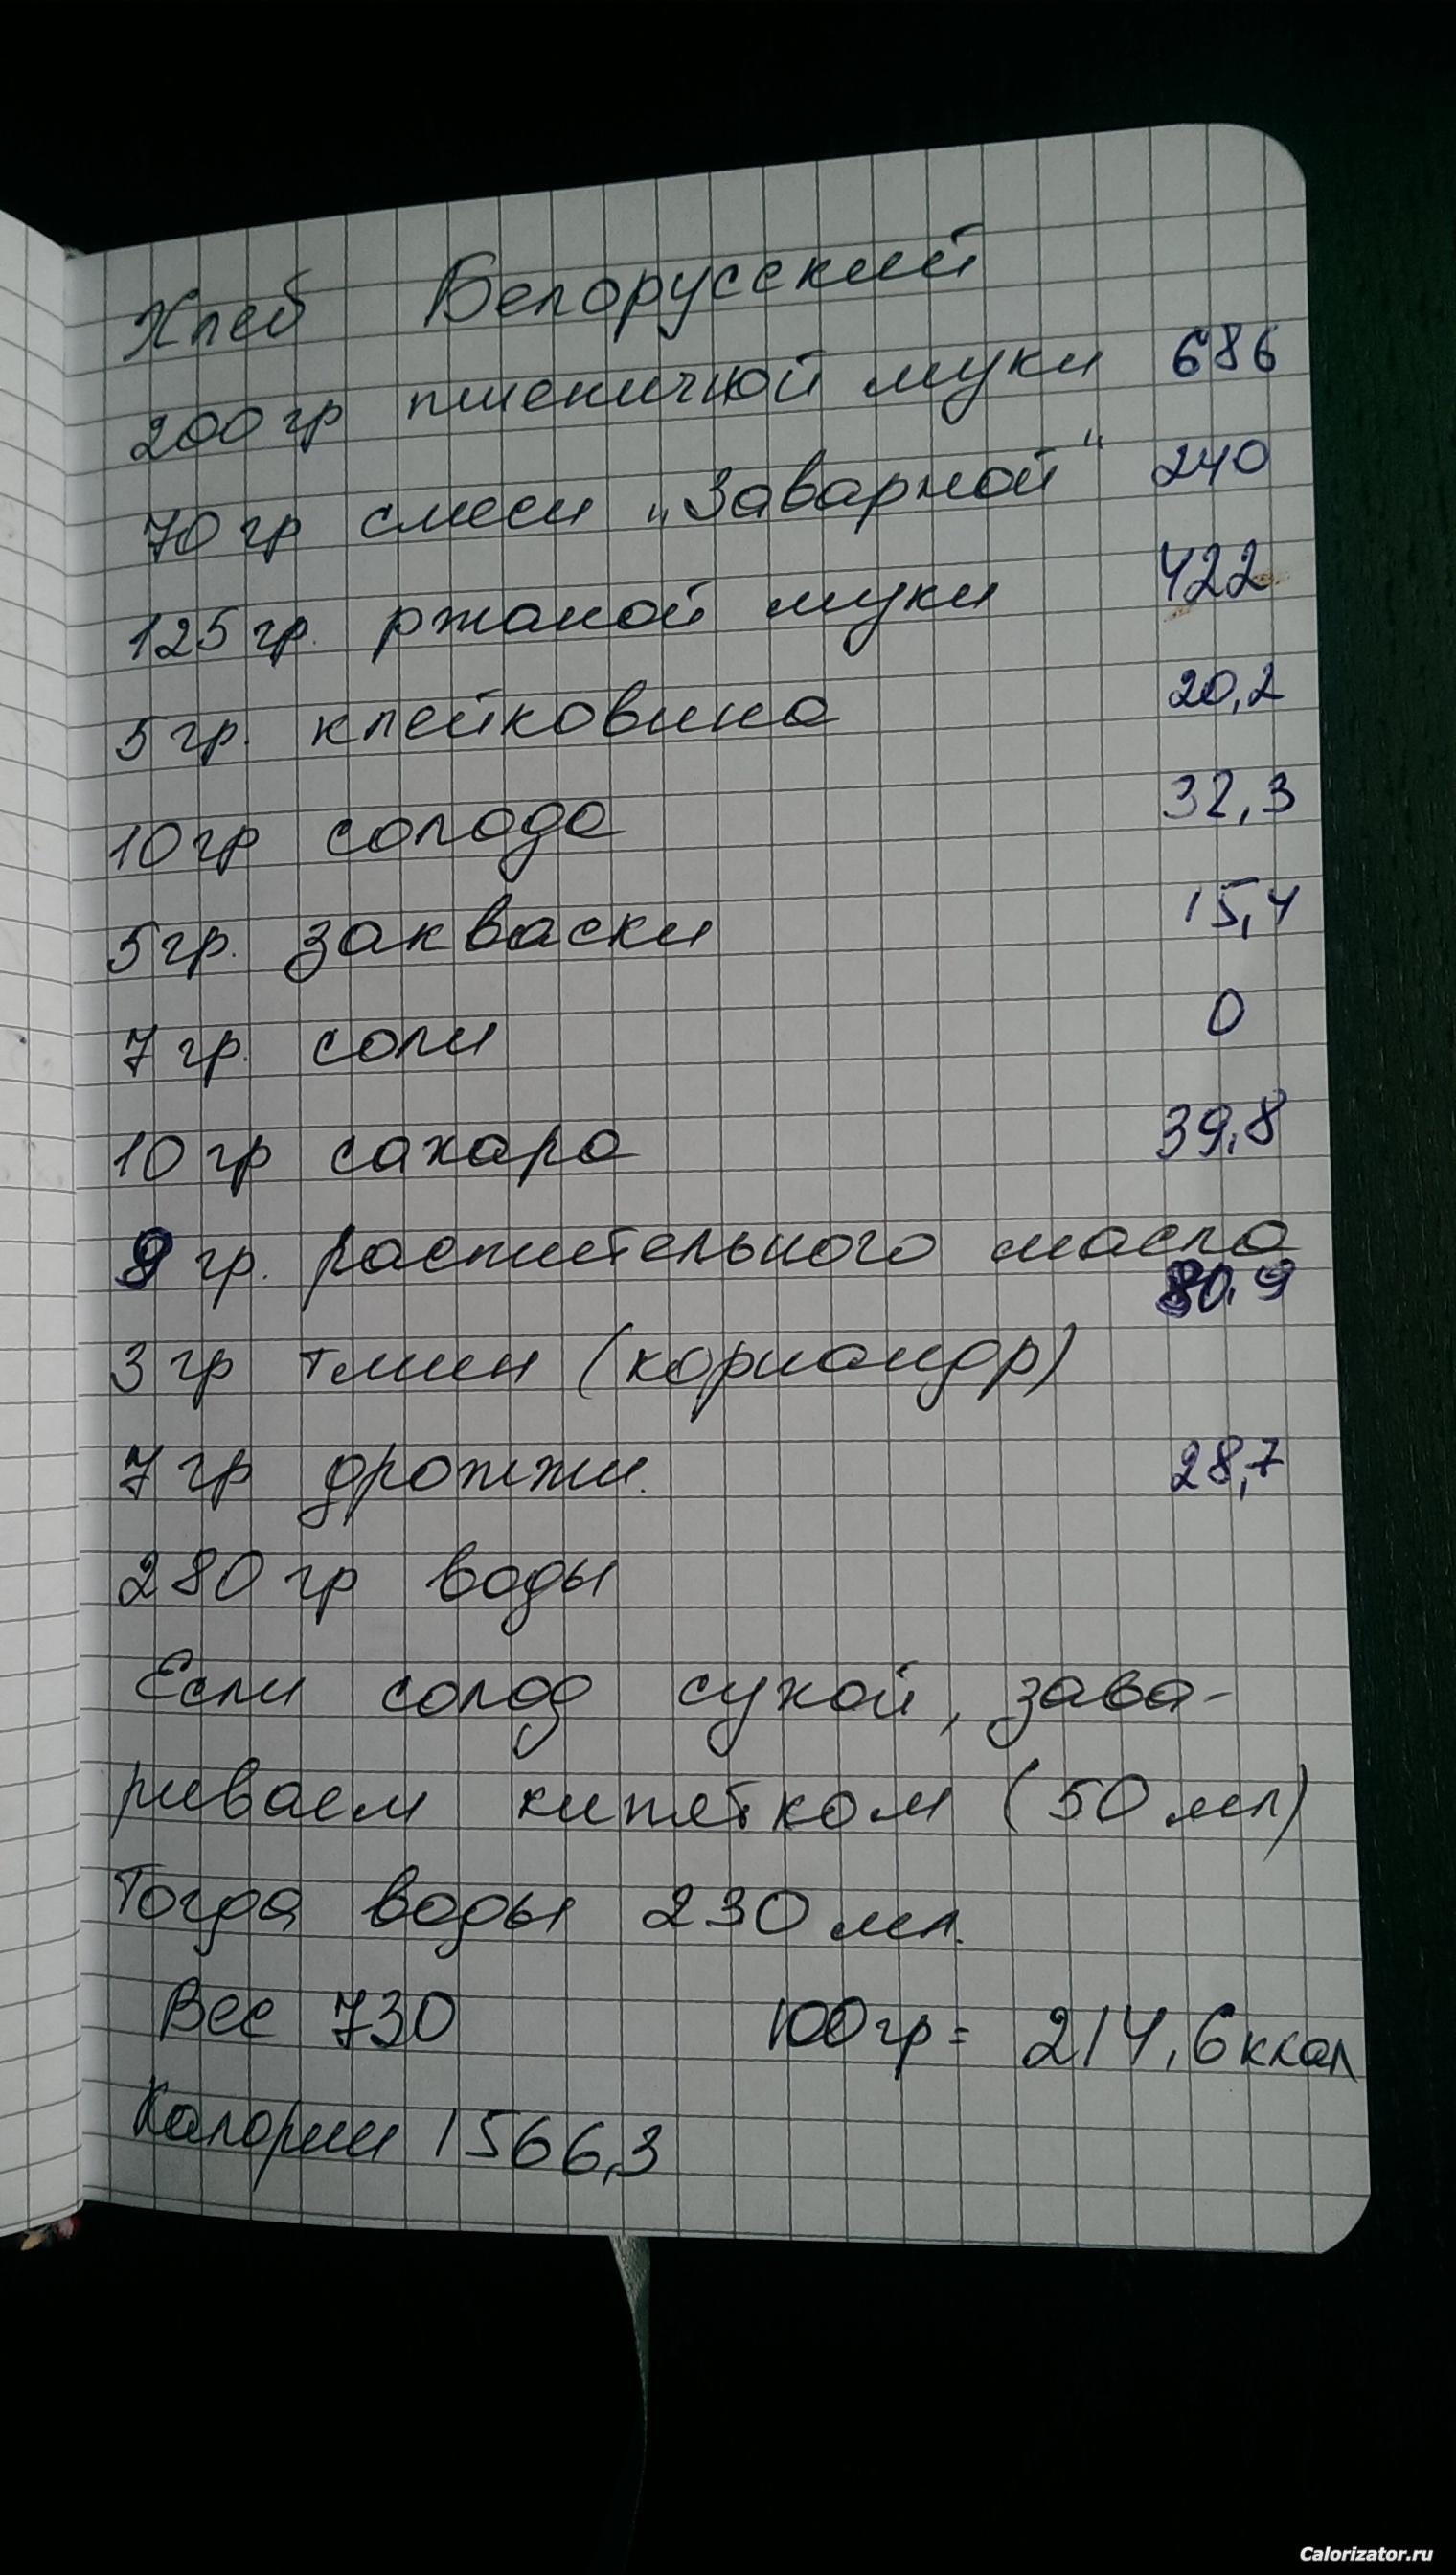 Хлеб Белорусский
200 гр пшеничной муки 686
70 гр смеси „Заварной“ 240
125 гр. ржаной муки 422
5 гр. клейковина 20,2
10 гр солода 32,3
5 гр. закваски 15,4
7 гр. соли 0
10 гр сахара 39,8
9 гр. растительного масла
80,9
3 гр тмин (кориандр)
7 гр дрожжи. 28,7
280 гр воды
Если солод сухой, зава-
риваем кипятком (50 мл)
Тогда воды 230 мл.
Вес 730 100 гр = 214,6 ккал
Калории 1566,3
Calorizator.ru